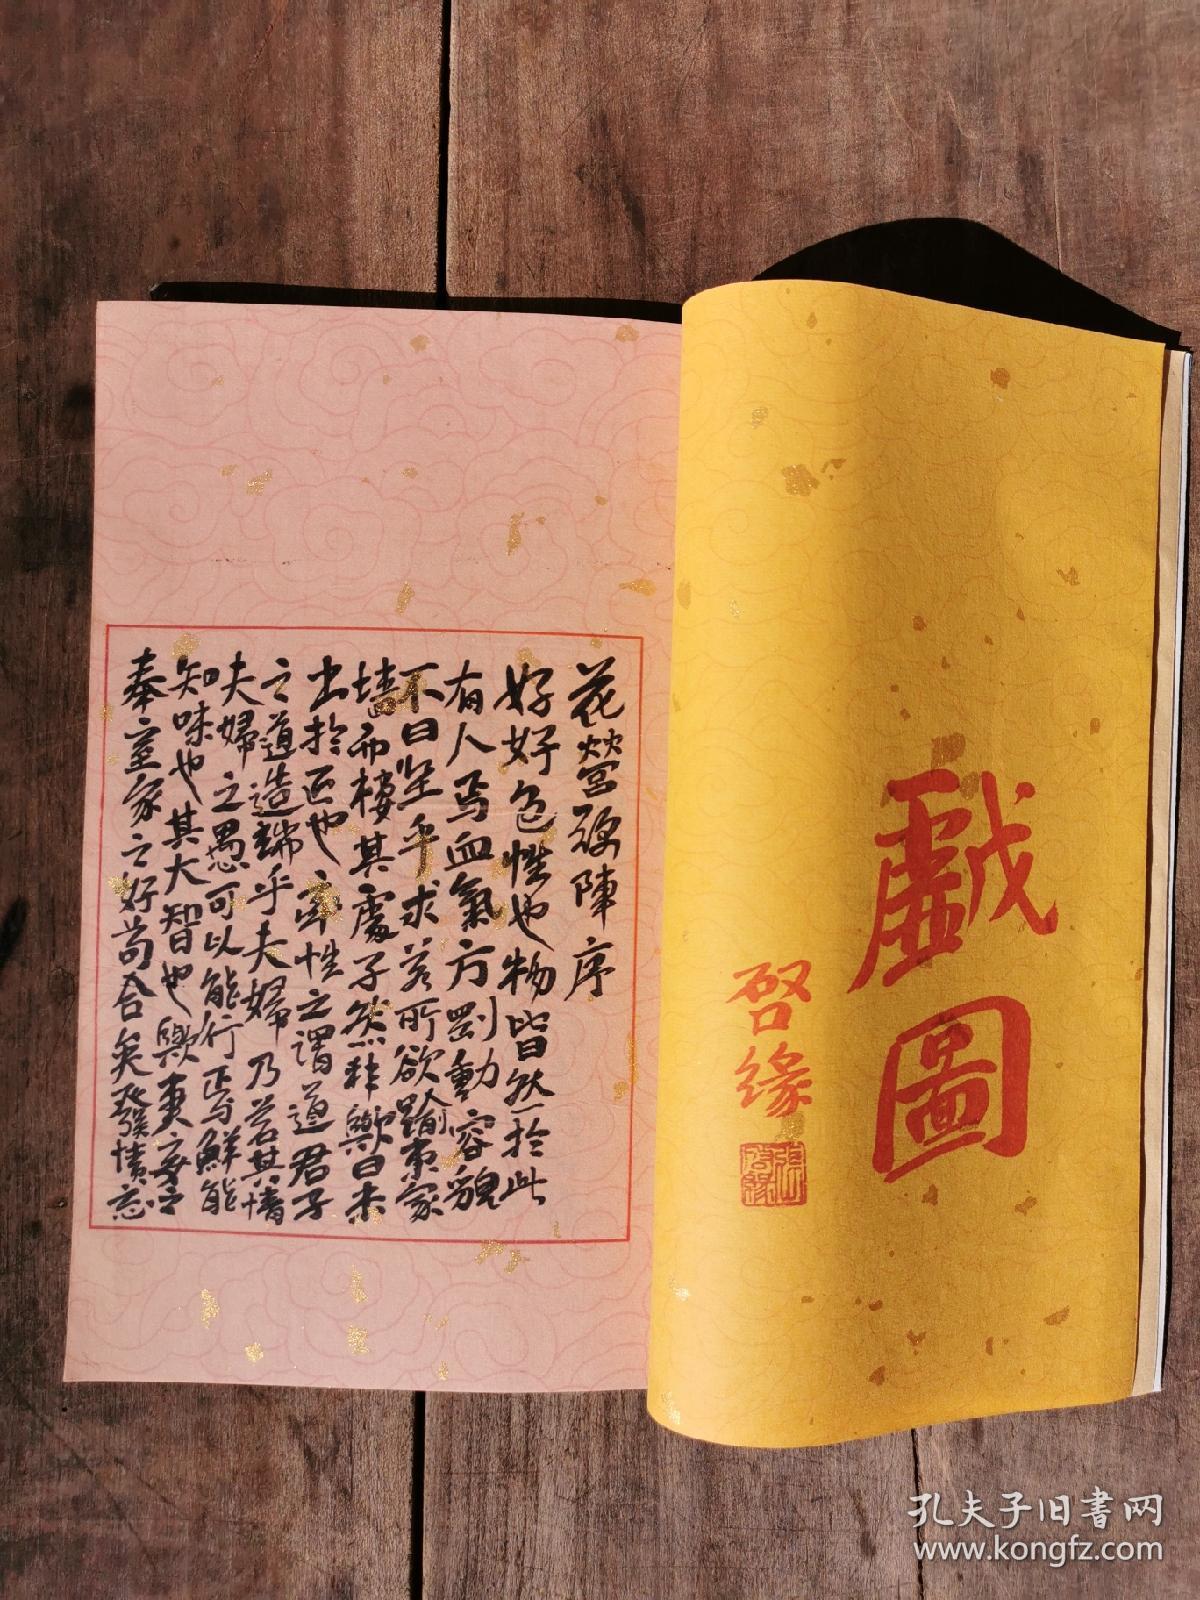 戲圖
啓缘
花營錦陣序
好好色性也物皆然扵此
有人焉血氣方剛動容貌
不曰坚乎求若所欲踰東家
墙而樓其處子然非歟曰未
出扵正也率性之謂道君子
之道造端乎夫婦乃若其情
夫婦之愚可以能行焉鮮能
知味也其大智也歟妻妾之
奉室家之好苟合矣發憤忘
孔夫子旧書网
www.kongfz.com